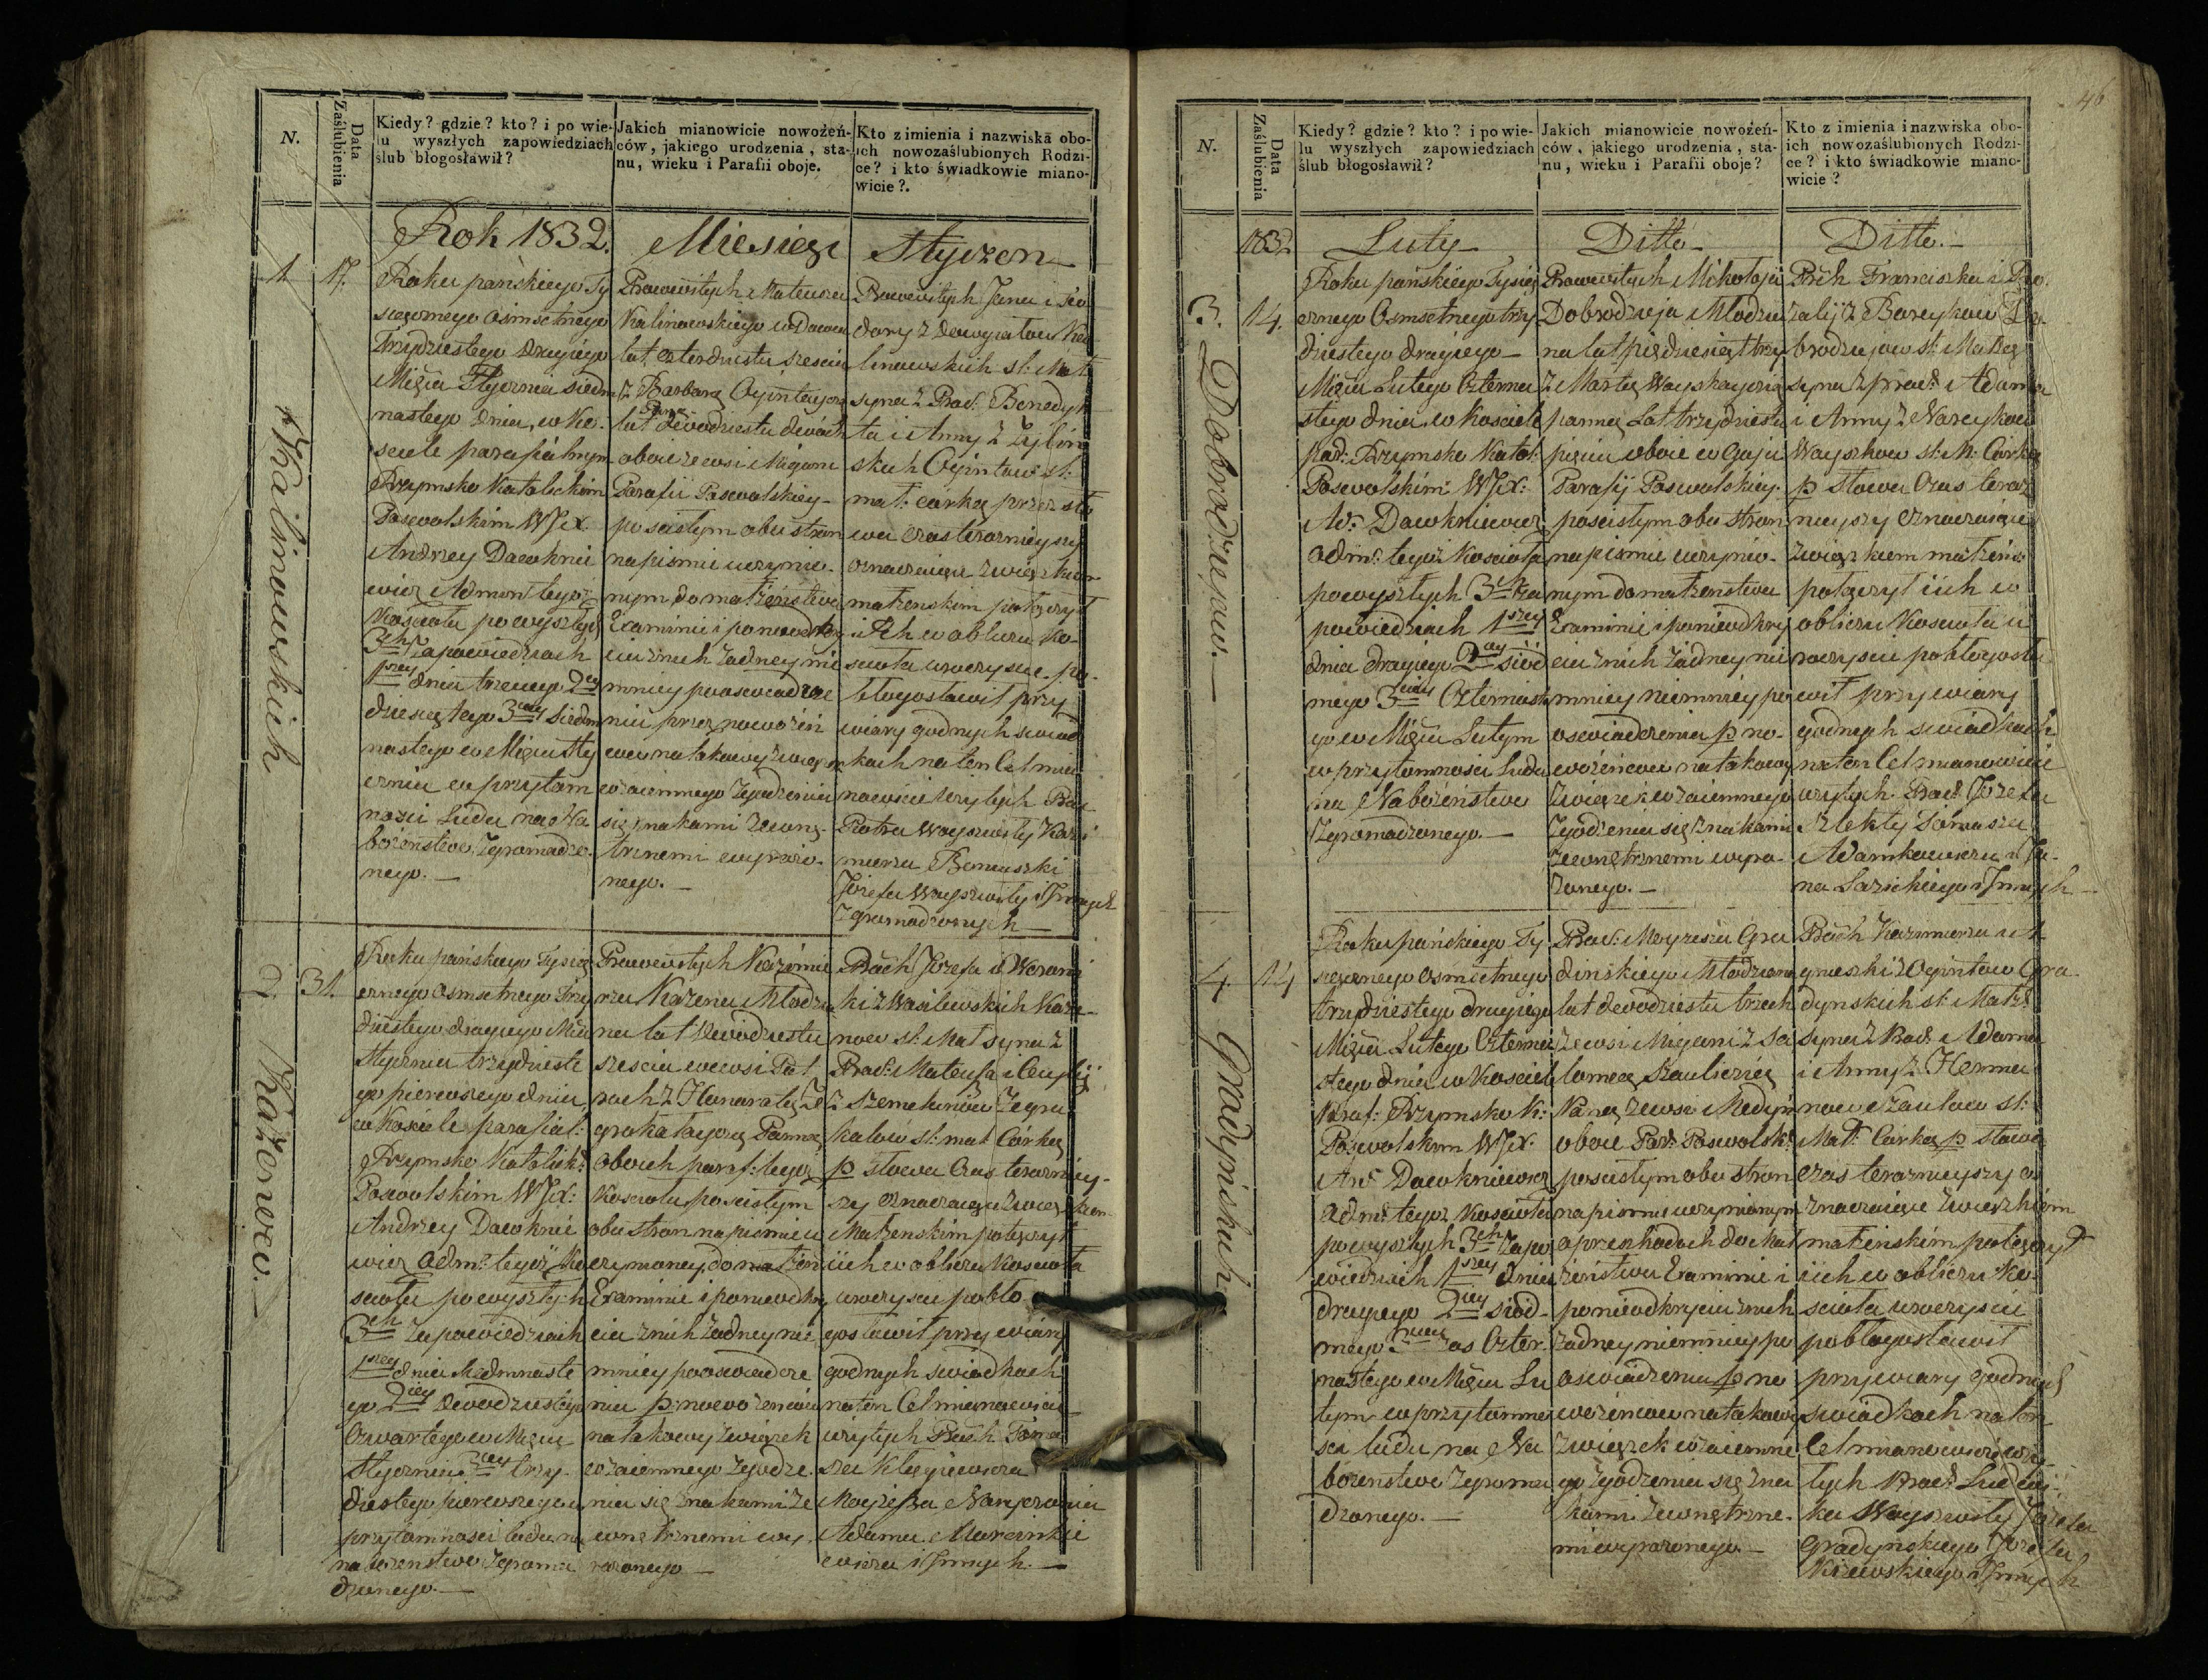 N.
Data Zaślubienia
Kiedy? gdzie? kto? i po wie-
lu wyszłych zapowiedziach
ślub błogosławił?
Jakich mianowicie nowożeń-
ców, jakiego urodzenia, sta-
nu, wieku i Parafii oboje.
Kto z imienia i nazwiska obo-
ich nowozaślubionych Rodzi-
ce? i kto świadkowie miano-
wicie?.
Rok 1832. Miesiąc Styczen
1 17.
Kalinowskich
Roku pańskiego Ty
siącznego osmsetnego
Trzydziestego drugiego
Mięsia Stycznia siedm
nastego dnia, w Ko-
sciele parafialnym
Rzymsko Katolickim
Poswolskim WJX.
Andrzey Dawknie
wicz Admon tegoż
Kościoła po wyszłych
3ch Zapowiedziach
1szey dnia trzeciego 2ey
dziesiątego 3ciey siedm
nastego w Mięsiu Sty
czniu w przytom
ności Ludu na Na
bożeństwo zgromadzo-
nego.—
Prawowitych Mateusza
Kalinowskiego wdowca
lat czterdziestu sześciu
z Barbarą Ogintayom
Panną
lat dwudziestu dwóch
oboie ze wsi Migoni
Parafii Poswolskiey—
po ścisłym obu stron
na piśmie uczynio-
nym do małżeństwa
Examinie i po nieodkry
ciu żadney nie
mniey po oswiadcze
niu przez nowożeń
ców na takowy związek
wzaiemnego zgodzenia
się znakami zewnę-
trznemi wyrażo-
nego.—
Prawowitych Jana i Teo
dory z Dowgiałow Ka
linowskich sł: Mał
syna z Praw: Benedyk
ta i Anny z
skich Ogintow sł:
mał: córką przez sło
wa czas teraznieyszy
oznaczaiące związkiem
małżenskim połączył
iich w obliczu Ko-
ścioła uroczyscie po-
błogosławił przy
wiary godnych świad
kach na ten Cel mia
nowicie użytych Pra
Piotra Woyszwiły Kazi
mierza
Józefa Woyszwiły i Innych
zgromadzonych—
2. 31.
Każenow.—
Roku pańskiego Tysią
cznego osmsetnego Trzy
dziestego drugiego Mśca
Stycznia trzydzieste
go pierwszego dnia
w Kosciele parafial:
Rzymsko Katolick:
Poswolskim WJX:
Andrzey Dawknie
wicz Adm: tegoż Ko
ścioła po wyszłych
3ch Zapowiedziach
1szey dnia siedmnaste
go 2iey dwudziestego
Czwartego w Mięsiu
Styczniu 3ciey trzy-
diestego pierwszego w
przytomnosci ludu na
nabożenstwo zgroma
dzonego.—
Prawowitych Kazimie
rza Każena Młodzie
na lat dwudziestu
sześciu we wsi Pał
rach z Honoratą Ze
grokataycią Panną
oboich paraf: tegoż
Kościoła po scisłym
obu stron na piśmie u
czynioney do małżeń
Examinie i po nieodkry
ciu z nich żadney nie
mniey po oswiadcze
niu p: nowożencow
na takowy związek
wzaiemnego zgodze-
nia się znakami ze
wnętrznemi wy-
rażonego—
Prach Jozefa i Weroni
ki z Wasilewskich Każe
now sł: Mał syna z
Praw: Mateusza i Cecylij
z Szemetunow Zegro
katow sł: mał Córką
p słowa Czas teraźniey-
szy oznaczaiące związkiem
Małżenskim połączył
iich w obliczu Koscioła
uroczyscie pobło-
gosławił przy wiary
godnych swiadkach
na ten Cel mianowicie
użytych Prach Toma
sza
Moyżesza
Adama Marcinkie
wicza i Innych.—
46
N.
Data Zaślubienia
Kiedy? gdzie? kto? i po wie-
lu wyszłych zapowiedziach
ślub błogosławił?
Jakich mianowicie nowożeń-
ców, jakiego urodzenia, sta-
nu, wieku i Parafii oboje?
Kto z imienia i nazwiska obo-
ich nowozaślubionych Rodzi-
ce? i kto świadkowie miano-
wicie?
1832. Luty— Ditto— Ditto.—
3. 14.
Dobrodziejow.—
Roku pańskiego Tysią
cznego Osmsetnego trzy
dziestego drugiego—
Mięsia Lutego Czterna
stego dnia, w Kosciele
par: Rzymsko Katol:
Poswolskim WJX:
An: Dawkniewicz
adm: tegoż Koscioła
po wyszłych 3ch Za
powiedziach 1szey
dnia drugiego 2ey siód
mego 3ciey Czternaste
go w Mięsiu Lutym
w przytomnosci Ludu
na Nabożeństwo
zgromadzonego.—
Prawowitych Mikołaja
Dobrodzieja Młodzie
na lat pięćdziesiąt trzy
z Martą Woyszkaycią
panną Lat trzydziestu
pięciu oboie w Gaju
Parafij Poswolskiey.
po scisłym obu stron
na piśmie uczynio-
nym do małżenstwa
Examinie i po nieodkry
ciu z nich żadney nie
mniey niemniey po
oswiadczeniu p no-
wożeńcow na takowy
związek wzaiemnego
zgodzenia się znakami
zewnętrznemi wyra-
żonego.—
Prch Franciszka i Ro
zalij z Boreykow Do-
brodziejow sł: Małżeń
syna z praw: Adama
i Anny z Nareykow
Woyszkow sł: M: Corką
p słowa Czas teraz
nieyszy oznaczaiące
związkiem małżeńs:
połączył iich w
obliczu Koscioła u
roczyscie pobłogosła
wił przy wiary
godnych swiadkach
na ten Cel mianowicie
użytych Praw: Jozefa
Szlekty Tomasza
Adamkowicza i Ja-
na Łazickiego i Innych—
4. 14
Gradyńskich
Roku pańskiego Ty
siącznego osmsetnego
trzydziestego drugiego
Mięsia Lutego Czterna
stego dnia w Kosciele
Paraf: Rzymsko K:
Poswolskim WJX:
An: Dawkniewicz
adm: tegoż Koscioła
po wyszłych 3ch Zapo
wiedziach 1szey dnia
drugiego 2iey siód-
mego 3ciey zas Czter-
nastego w Mięsiu Lu
tym w przytomno
sci ludu na Na
bożenstwo zgroma
dzonego.—
Praw: Moyzesza Gra
dinskiego Młodziana
lat dwudziestu trzech
ze wsi Migoni z Sa
lomeą Szauliczią
Panną ze wsi
oboie Par: Poswolsk:
po scisłym obu stron
na piśmie uczynionym
o przeszkodach do Mał
żeństwa Examinie i
po nieodkryciu z nich
żadney niemniey po
oswiadczeniu p no
wożencow na takowy
związek wzaiemne
go zgodzenia się zna
kami zewnętrzne-
mi wyrażonego—
Prach Kazimierza i A
gnieszki z Ogintow Gra
dynskich sł: Małż:
syna z Prad: Adama
i Anny z
Szaulow sł:
Mał: Córką p słowa
czas teraznieyszy o
znaczaiące związkiem
małżeńskim połączył
iich w obliczu Ko-
scioła uroczyscie
pobłogosławił
przy wiary godnych
swiadkach na ten
Cel mianowicie uży-
tych Praw: Ludwi-
ka Woyszwiły Jozefa
Gradynskiego Jozefa
Kizewskiego i Innych